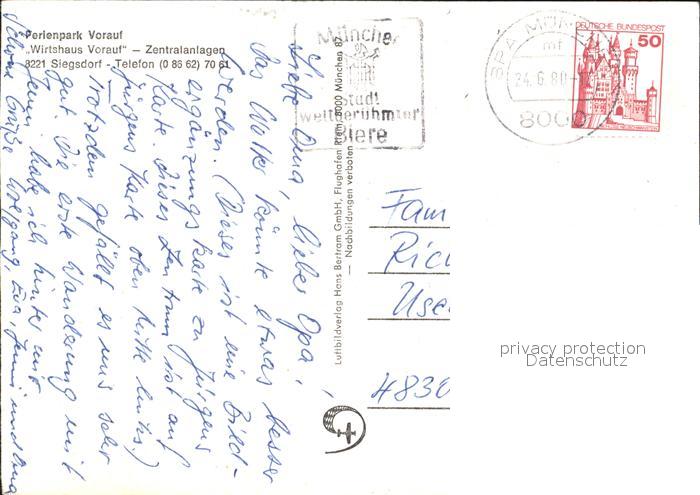 Ferienpark Vorauf
„Wirtshaus Vorauf" — Zentralanlagen
8221 Siegsdorf - Telefon (0 86 62) 70 61
Liebe Oma, lieber Opa,
das Wetter könnte etwas besser
werden. (Dieses ist eine Bild-
ergänzungskarte zu Jürgens
Karte dieses Zentrum ist auf
Jürgens Karte oben mitte links.)
Trotzdem gefällt es uns sehr
gut. Die erste Wanderung mit
habe ich hinter mir
Schöne Grüße Wolfgang, Eva, und
Luftbildverlag Hans Bertram GmbH, Flughafen Riem, 8000 München 87
— Nachbildungen verboten —
München
Stadt
weltberühmter
Biere
24.6.80
mf
8000
DEUTSCHE BUNDESPOST
50
Fam
Ric
Use
4830
privacy protection
Datenschutz